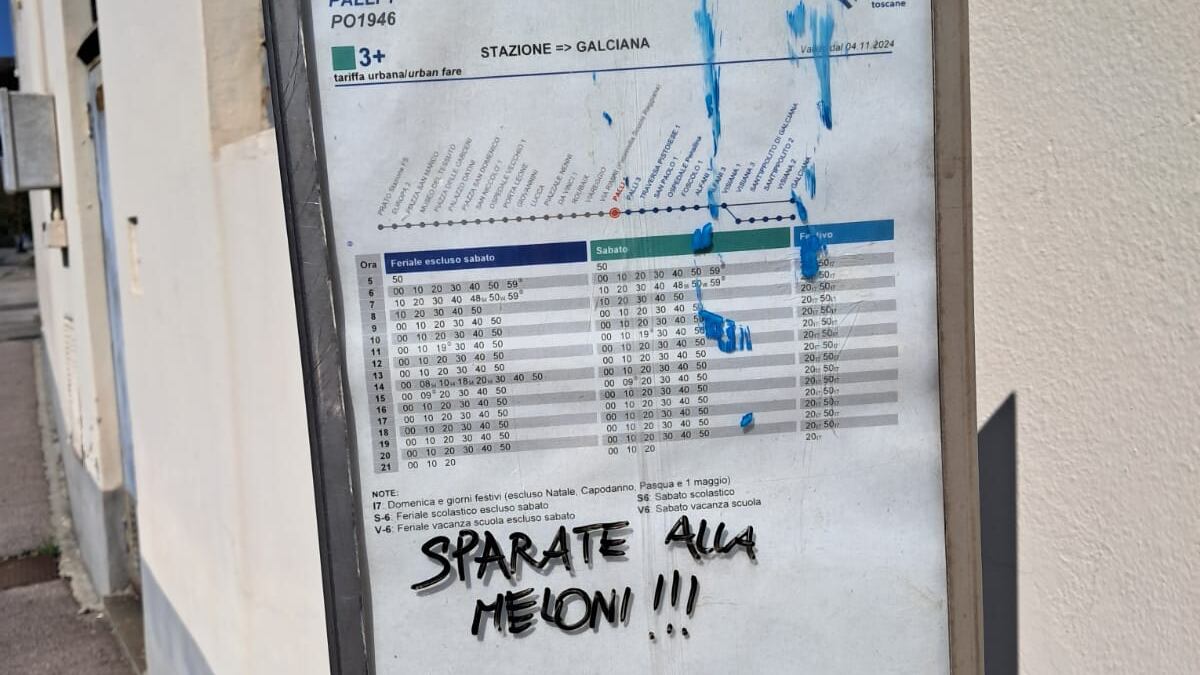 PALLI 1
PO1946
toscane
3+
STAZIONE => GALCIANA
Valido dal 04.11.2024
tariffa urbana/urban fare
PIAZZA SAN MARCO
MUSEO DEL TESSUTO
PALAZZO DATINI
PIAZZA SAN DOMENICO
SAN NICCOLO' 1
OSPEDALE VECCHIO 1
PORTA LEONE
GIOVANNINI
LUCCA
PIAZZALE NENNI
DA VINCI 1
ROUBAIX
VIAREGGIO
PALLI 3
TRAVERSA PISTOIESE 1
SAN PAOLO 1
OSPEDALE Palasaccio
FOSCOLO 1
VISIANA 1
VISIANA 3
SANT'IPPOLITO DI GALCIANA
SANT'IPPOLITO 2
VISIANA 2
GALCIANA
Ora Feriale escluso sabato Sabato Festivo
5 50 50
6 00 10 20 30 40 50 59 00 10 20 30 40 50 59
7 10 20 30 40 48 50 59 10 20 30 40 48 50 59
8 10 20 30 40 50 10 20 30 40 50
9 00 10 20 30 40 50 00 10 20 30 40 50
10 00 10 20 30 40 50 00 10 20 30 40 50
11 00 10 19 30 40 50 00 10 19 30 40 50
12 00 10 20 30 40 50 00 10 20 30 40 50
13 00 10 20 30 40 50 00 10 20 30 40 50
14 00 08 10 18 20 30 40 50 00 10 20 30 40 50
15 00 09 20 30 40 50 00 09 20 30 40 50
16 00 10 20 30 40 50 00 10 20 30 40 50
17 00 10 20 30 40 50 00 10 20 30 40 50
18 00 10 20 30 40 50 00 10 20 30 40 50
19 00 10 20 30 40 50 00 10 20 30 40 50
20 00 10 20 30 40 50 00 10 20 30 40 50
21 00 10 20 00 10 20
NOTE:
I7: Domenica e giorni festivi (escluso Natale, Capodanno, Pasqua e 1 maggio)
S-6: Feriale scolastico escluso sabato S6: Sabato scolastico
V-6: Feriale vacanza scuola escluso sabato V6: Sabato vacanza scuola
SPARATE ALLA
MELONI !!!